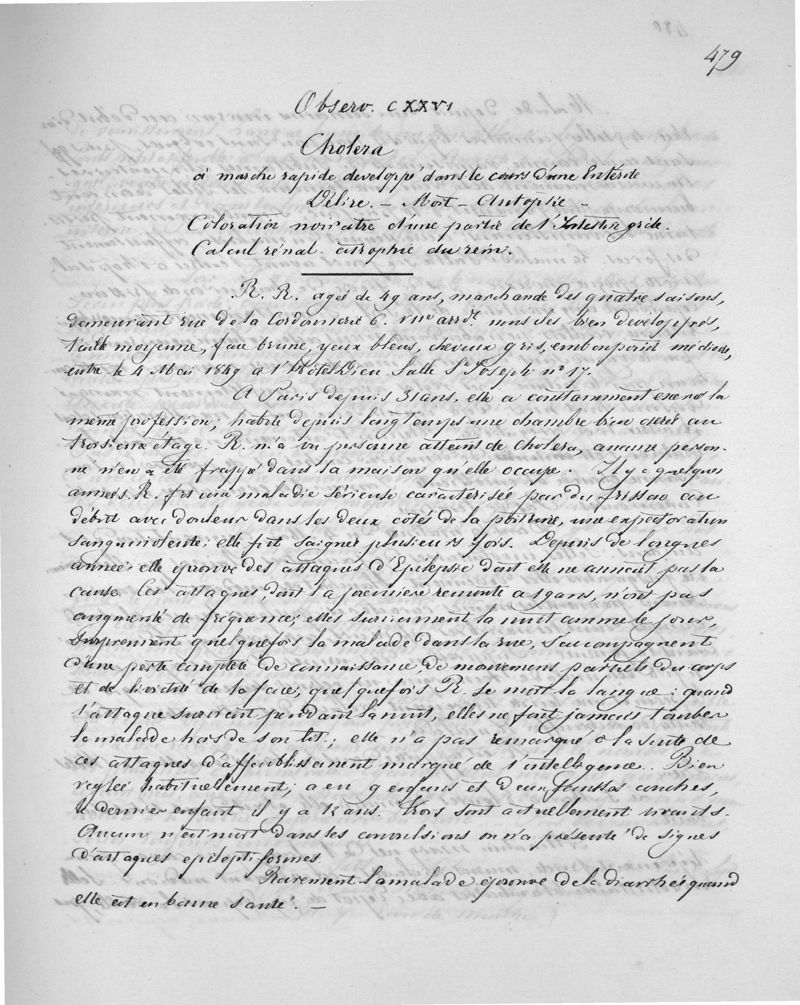 479
Observ. CXXVI
Cholera
à marche rapide developpé dans le cours d'une Entérite
Délire. — Mort — Autopsie —
Coloration noirâtre d'une partie de l'Intestin grêle.
Calcul rénal. atrophie du rein.
R. R. agée de 49 ans, marchande des quatre saisons,
demeurant rue de la Cordonnerie 6. VIIe arrdt. muscles bien developpés,
taille moyenne, face brune, yeux bleus, cheveux gris, embonpoint médiocre,
entre le 4 Mai 1849 à l'Hôtel Dieu Salle St Joseph no 17.
A Paris depuis 31 ans, elle a constamment exercé la
même profession; habite depuis longtemps une chambre bien aérée au
troisieme étage. R. n'a vu personne atteint de cholera, aucune person-
ne n'en a été frappé dans la maison qu'elle occupe. Il y a quelques
années R. fit une maladie sérieuse caractérisée par du frisson au
début avec douleur dans les deux côtés de la poitrine, une expectoration
sanguinolente; elle fut saignée plusieurs fois. Depuis de longues
années elle éprouve des attaques d'Epilepsie dont elle ne connait pas la
cause. Ces attaques, dont la premiere remonte a 19 ans, n'ont pas
augmenté de fréquence; elles surviennent la nuit comme le jour,
surprennent quelquefois la malade dans la rue, s'accompagnent
d'une perte complète de connaissance de mouvemens partiels du corps
et de lividité de la face; quelquefois R. se mord la langue: quand
l'attaque survient pendant la nuit, elles ne font jamais tomber
la malade hors de son lit; elle n'a pas remarqué à la suite de
ces attaques d'affaiblissement marqué de l'intelligence. Bien
reglée habituellement; a eu 9 enfans et deux fausses couches,
le dernier enfant il y a 12 ans. trois sont actuellement vivants.
Aucun n'est mort dans les convulsions ou n'a présenté de signes
d'attaques epileptiformes.
Rarement la malade éprouve de la diarrhée quand
elle est en bonne santé. —